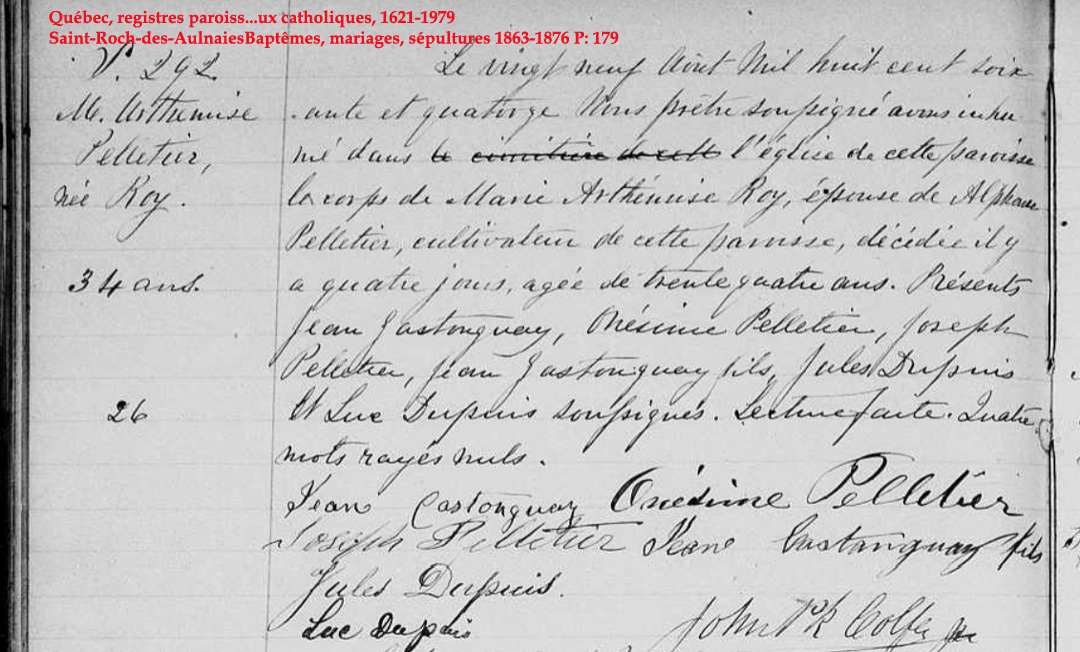 Québec, registres paroiss...ux catholiques, 1621-1979
Saint-Roch-des-AulnaiesBaptêmes, mariages, sépultures 1863-1876 P: 179
Le vingt neuf Août Mil huit cent soix
.ante et quatorze Nous prêtre soussigné avons inhu
mé dans le cimitière de cett l'église de cette paroisse
le corps de Marie Arthémise Roy, épouse de Alphonse
Pelletier, cultivateur de cette paroisse, décédée il y
a quatre jours, agée de trente quatre ans. Présents
Jean Gastonguay, Onésime Pelletier, Joseph
Pelletier, Jean Gastonguay fils, Jules Dupuis
Et Luc Dupuis soussignés. Lecture faite. Quatre
mots rayés nuls.
S. 292.
M. Arthemise
Pelletier,
née Roy.
34 ans.
26
Jean Castonguay Onésime Pelletier
Joseph Pelletier Jean Castonguay fils
Jules Dupuis.
Luc Dupuis
John